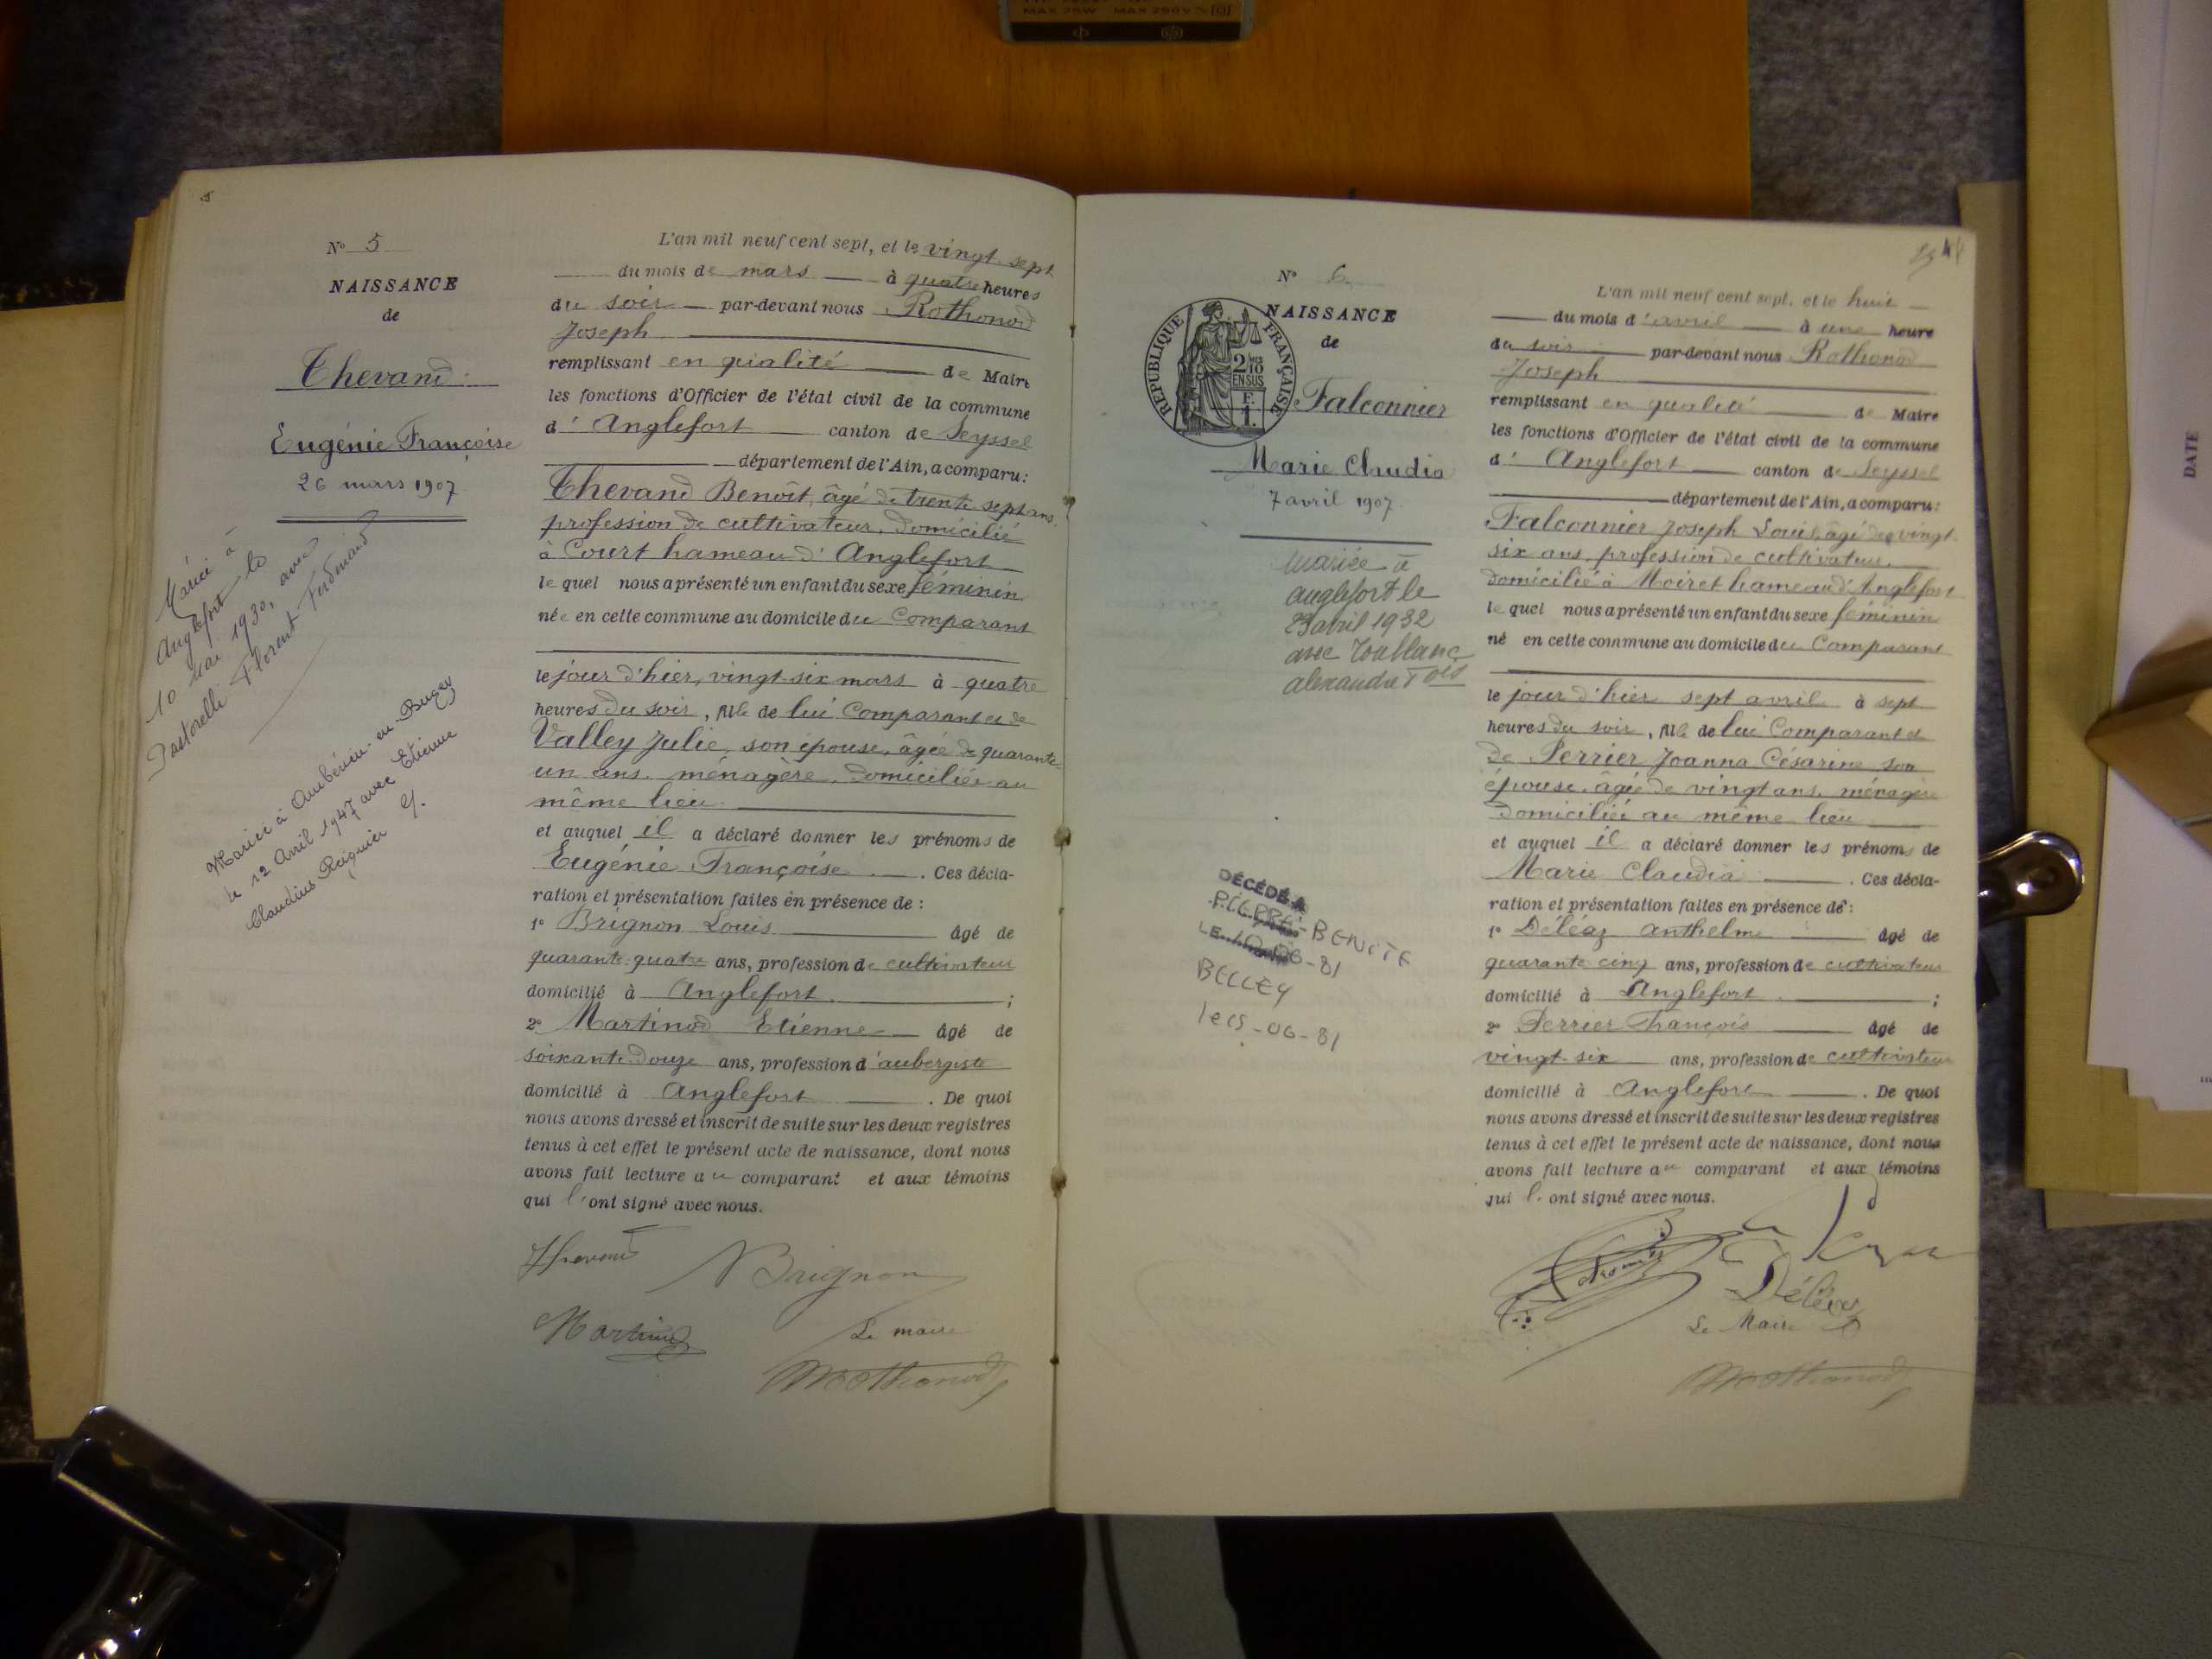 MAX 75W MAX 250V
5
N° 5
NAISSANCE
de
Thevand
Eugénie Françoise
26 mars 1907
Mariée à
Anglefort le
10 mai 1930, avec
Pastorelli Florent Ferdinand
Mariée à Ambérieu-en-Bugey
le 12 Avril 1947 avec Etienne
Claudius
L'an mil neuf cent sept, et le vingt-sept
du mois de mars à quatre heures
du soir par-devant nous Rothonod
Joseph
remplissant en qualité de Maire
les fonctions d'Officier de l'état civil de la commune
d' Anglefort canton de Seyssel
département de l'Ain, a comparu:
Thevand Benoît, âgé de trente sept ans,
profession de cultivateur, domicilié
à Court hameau d'Anglefort
le quel nous a présenté un enfant du sexe féminin
née en cette commune au domicile du Comparant
le jour d'hier, vingt-six mars à quatre
heures du soir, fille de lui Comparant et de
Valley Julie, son épouse, âgée de quarante-
un ans, ménagère, domiciliée au
même lieu.
et auquel il a déclaré donner les prénoms de
Eugénie Françoise. Ces décla-
ration et présentation faites en présence de :
1° Brignon Louis âgé de
quarante-quatre ans, profession de cultivateur
domicilié à Anglefort ;
2° Martinod Etienne âgé de
soixante-douze ans, profession d'aubergiste
domicilié à Anglefort. De quoi
nous avons dressé et inscrit de suite sur les deux registres
tenus à cet effet le présent acte de naissance, dont nous
avons fait lecture au comparant et aux témoins
qui l'ont signé avec nous.
Thevand
Brignon
Martinod
Le maire
Rothonod
N° 6
RÉPUBLIQUE FRANÇAISE
2/10
EN SUS
F.
1.
NAISSANCE
de
Falconnier
Marie Claudia
7 avril 1907
mariée à
anglefort le
23 avril 1932
avec
DÉCÉDÉ A
PIERRE-BENITE
LE 06-81
BELLEY
le 15-06-81
L'an mil neuf cent sept, et le huit
du mois d'avril à une heure
du soir par-devant nous Rothonod
Joseph
remplissant en qualité de Maire
les fonctions d'Officier de l'état civil de la commune
d' Anglefort canton de Seyssel
département de l'Ain, a comparu:
Falconnier Joseph Louis, âgé de vingt
six ans, profession de cultivateur,
domicilié à Moiret hameau d'Anglefort
le quel nous a présenté un enfant du sexe féminin
né en cette commune au domicile du Comparant
le jour d'hier sept avril à sept
heures du soir, fille de lui Comparant et
de Perrier Joanna Césarine son
épouse, âgée de vingt ans, ménagère
domiciliée au même lieu
et auquel il a déclaré donner les prénoms de
Marie Claudia. Ces décla-
ration et présentation faites en présence de :
1° Déléaz Anthelme âgé de
quarante-cinq ans, profession de cultivateur
domicilié à Anglefort ;
2° Perrier François âgé de
vingt-six ans, profession de cultivateur
domicilié à Anglefort. De quoi
nous avons dressé et inscrit de suite sur les deux registres
tenus à cet effet le présent acte de naissance, dont nous
avons fait lecture au comparant et aux témoins
qui l'ont signé avec nous.
Déléaz
Le Maire
Rothonod
DATE